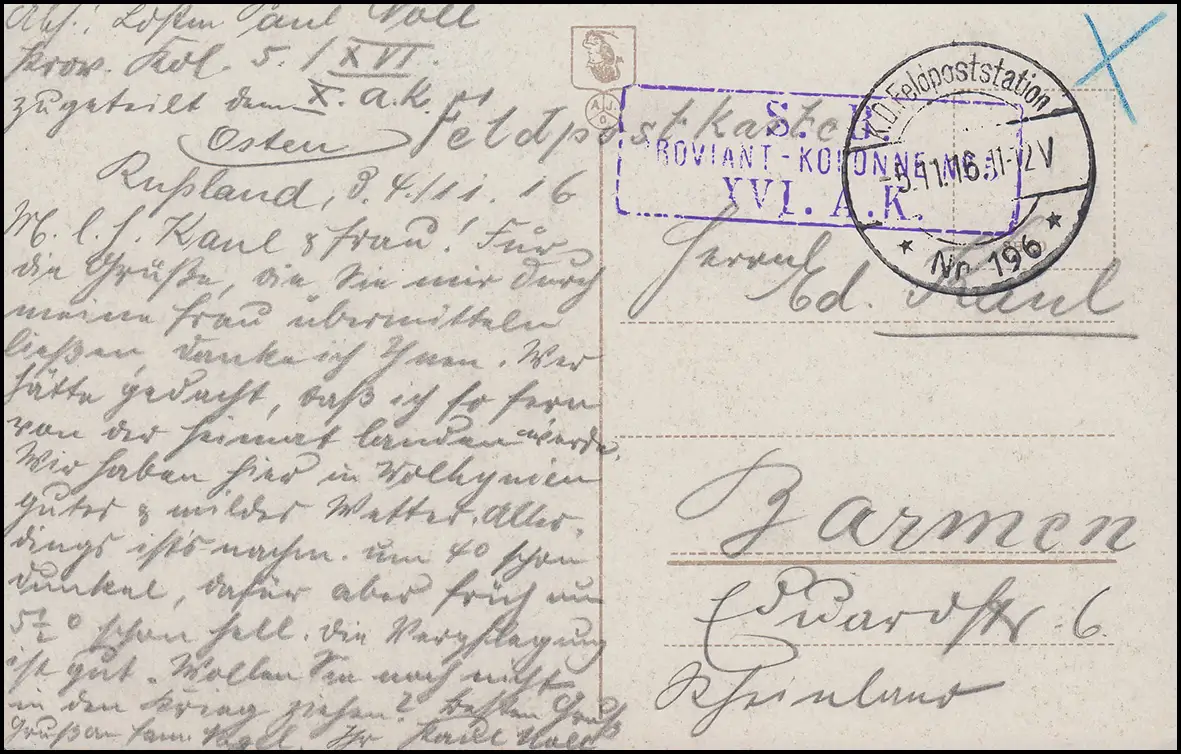 Abs.: Ldstm Paul Noll
Prov. Kol. 5. / XVI.
zugeteilt dem X. A.K.
Osten
Feldpostkarte
Rußland, 3. 4./11. 16
M. l. H. Kaul & Frau! Für
die Grüße, die Sie mir durch
meine Frau übermitteln
ließen, danke ich Ihnen. Wer
hätte gedacht, daß ich so fern
von der Heimat landen werde.
Wir haben hier in Wolhynien
gutes & mildes Wetter. Aller-
dings ists nachm. um 4° schon
dunkel, dafür aber früh um
5½° schon hell. Die Verpflegung
ist gut. Wollen Sie noch nicht
in den Krieg ziehen? Besten Gruß
Gruß an Fam. Vogel. Ihr Paul Noll
A J
O
S. B.
PROVIANT-KOLONNE No. 5
XVI. A.K.
K.D. Feldpoststation
-5.11.16.11-12V
Nr. 196
Herrn
Ed. Kaul
Barmen
Eduardstr. 6.
Rheinland